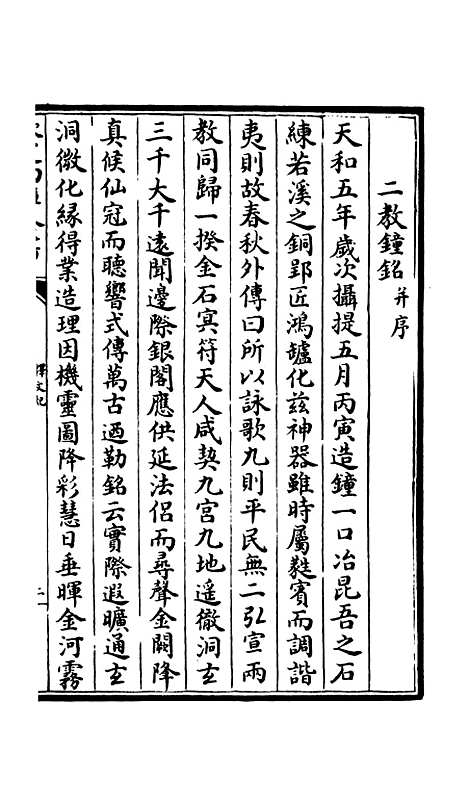 二教鐘銘 并序
天和五年歲次攝提五月丙寅造鐘一口冶昆吾之石
練若溪之銅郢匠鴻鑪化茲神器雖時屬蕤賓而調諧
夷則故春秋外傳曰所以詠歌九則平民無二弘宣兩
教同歸一揆金石㝠符天人咸契九宮九地遥徹洞𤣥
三千大千遠聞邊際銀閣應供延法侣而尋聲金闕降
真候仙冠而聽響式傳萬古迺勒銘云實際遐曠通𤣥
洞微化縁得業造理因機靈圖降彩慧日垂暉金河霧
釋文紀